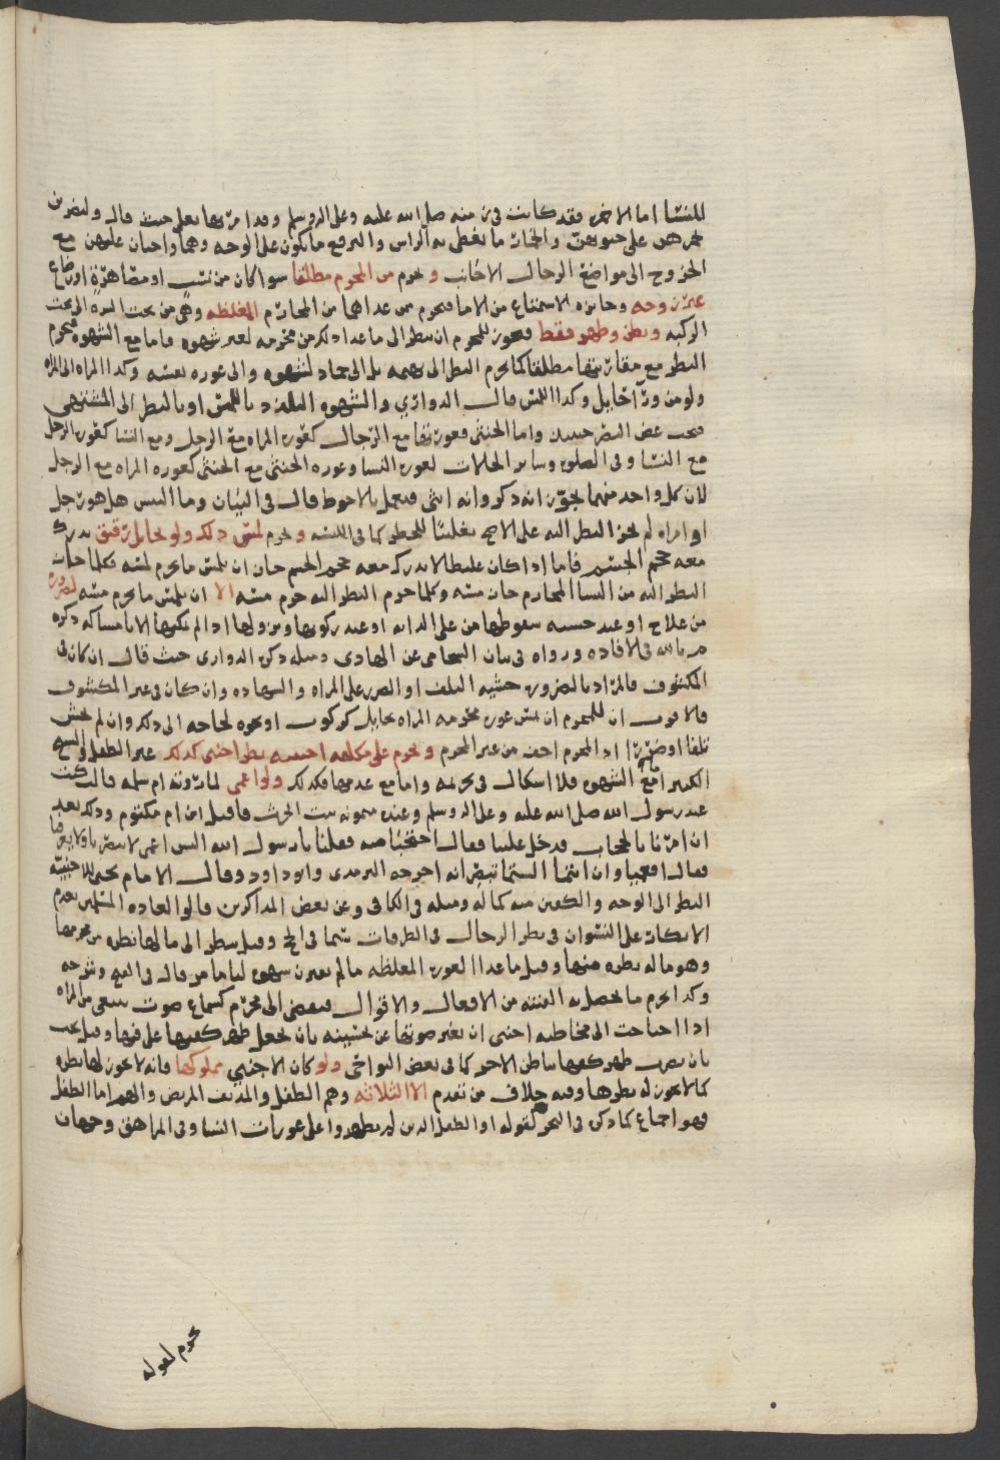 للنسا اما الاخرى فقد كانت في زمنه صلى الله عليه وعلى اله وسلم وقد امر بها تعالى حيث قال وليضربن
بخمرهن على جيوبهن والخمار ما يغطى به الراس والبرقع ما يكون على الوجه وهما واجبان عليهن مع
الخروج الى مواضع الرجال الاجانب و يحرم من المحرم مطلقا سوا كان من نسب او مصاهرة او رضاع
غير زوجه وجايزه الاستمتاع من الاما فيحرم ممن عداهما من المحارم المغلظه وهي من تحت السره الى تحت
الركبه وبطن وظهر فقط فيجوز للمحرم ان ينظر الى ما عدا ذلك من محرمه لغير شهوه فاما مع الشهوه فيحرم
النظر مع مقارنتها مطلقا كما يحرم النظر الى بهيمه بل الى جماد لشهوه والى عوره نفسه وكذا المراه الى المراه
ولو من ورآ حايل وكذا اللمس قال الدواري والشهوه التلذذ باللمس او بالنظر الى المشتهى
فيجب غض البصر حينئذ واما الخنثى فعورتها مع الرجال كعورة المراه مع الرجل ومع النسا كعورة الرجل
مع النسا وفي الصلوه وساير الحالات كعورة النسا وعوره الخنثى مع الخنثى كعوره المراه مع الرجل
لان كل واحد منهما يجوز انه ذكر وانه انثى فيعمل بالاحوط قال في البيان وما التبس هل هو رجل
او امراه لم يجز النظر اليه على الاصح تغليبا للحظر كما في اللبسه و يحرم لمس ذلك ولو بحايل رقيق يدرك
معه حجم الجسم فاما اذا كان غليظا لا يدرك معه حجم الجسم جاز ان يلمس ما يحرم لمسه فكلما جاز
النظر اليه من النسا المحارم جاز مسه وكلما حرم النظر اليه حرم مسه الا ان يلمس ما يحرم مسه لضرورة
من علاج او عند خشيه سقوطها من على الدابه او عند ركوبها ونزولها اذا لم يمكنها الا بامساكه ذكره
م بالله في الافاده ورواه في بيان السحامى عن الهادي ومثله ذكر الدواري حيث قال ان كان في
المكشوف فالمراد بالضروره خشيه التلف او الضرر على المراه والشهاده وان كان في غير المكشوف
فالاقرب ان للمحرم ان يمس عورة محرمه المراه بحايل كركوب او نحوه لحاجه الى ذلك وان لم يخش
تلفا او ضررا اذ المحرم اخف من غير المحرم و يحرم على مكلفه اجنبيه نظر اجنبي كذلك غير الطفل والشيخ
الكبير امع الشهوه فلا اشكال في تحريمه واما مع عدمها فكذلك ولو اعمى لما روته ام سلمه قالت كنت
عند رسول الله صلى الله عليه وعلى اله وسلم وعنده ميمونه بنت الحرث فاقبل ابن ام مكتوم وذلك بعد
ان امرنا بالحجاب فدخل علينا فقال احتجبا منه فقلنا يا رسول الله اليس اعمى لا يبصرنا ولا يعرفنا
فقال افعمياوان انتما الستما تبصرانه اخرجه الترمذى وابو داود وقال الامام يحيى للاجنبيه
النظر الى الوجه والكفين منه كما له ومثله في الكافى وعن بعض المذاكرين قالوا لعادة المسلمين بعدم
الانكار على النسوان في نظر الرجال في الطرقات سيما في الحج وقيل ينظر الى ما لها نظره من محرمها
وهو ما له نظره منها وقيل ما عدا العورة المغلظه ما لم يقترن شهوه
وكذا يحرم ما يحصل به الفتنه من الافعال والاقوال فيفضى الى محرم كسماع صوت
اذا احتاجت الى مخاطبه اجنبى ان تغير صوتها عن بان تجعل ظهر كفيها على فيها وقيل يجب
بان تضرب ظهر كفيها بباطن الاخر كما في بعض النواحى ولو كان الاجنبي مملوكها فانه لا يجوز لها نظره
كما لا يجوز له نظرها وفيه خلاف من تقدم الا الثلاثه وهم الطفل والمدنف المريض والهم اما الطفل
فهو اجماع كما ذكره في البحر لقوله او الطفل الذين لم يظهروا على عورات النسا وفي المراهق وجهان
يحرم لقوله